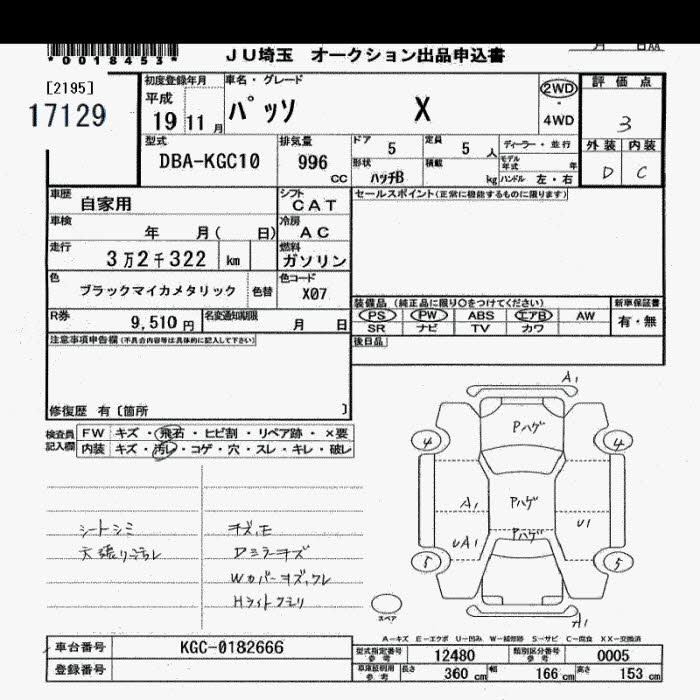 *0018453*
JU埼玉 オークション出品申込書
月 日AA
[2195]
17129
初度登録年月 車名・グレード
平成 19 11月
パッソ X
2WD・4WD
評価点
3
外装 内装
D C
型式 DBA-KGC10
排気量 996 CC
ドア 5 定員 5 人
形状 ハッチB 積載 kg
ディーラー・並行
モデル年式 年
ハンドル 左・右
車歴 自家用
シフト CAT
セールスポイント(正常に機能するものに限ります)
車検 年 月( 日)
冷房 AC
走行 3万2千322 km
燃料 ガソリン
色 ブラックマイカメタリック 色替
色コード X07
装備品 (純正品に限り○をつけてください) 新車保証書
PS PW ABS エアB AW 有・無
SR ナビ TV カワ
R券 9,510円 名変通知期限 月 日
後日品
注意事項申告欄(不具合内容等は具体的に記入して下さい)
修復歴 有〔箇所 〕
検査員記入欄
FW キズ・飛石・ヒビ割・リペア跡・×要
内装 キズ・汚レ・コゲ・穴・スレ・キレ・破レ
シートシミ
キズ,モ
Dミラーキズ
Wカバーキズ,ワレ
Hライトクモリ
A1
Pハゲ
4 4
A1 Pハゲ U1
UA1 Pハゲ
5 5
スペア
A1
A-キズ E-エクボ U-凹み W-補修跡 S-サビ C-腐食 XX-交換済
車台番号 KGC-0182666
型式指定番号 参考 12480 類別区分番号 参考 0005
登録番号
車庫証明用 参考 長さ 360 cm 幅 166 cm 高さ 153 cm